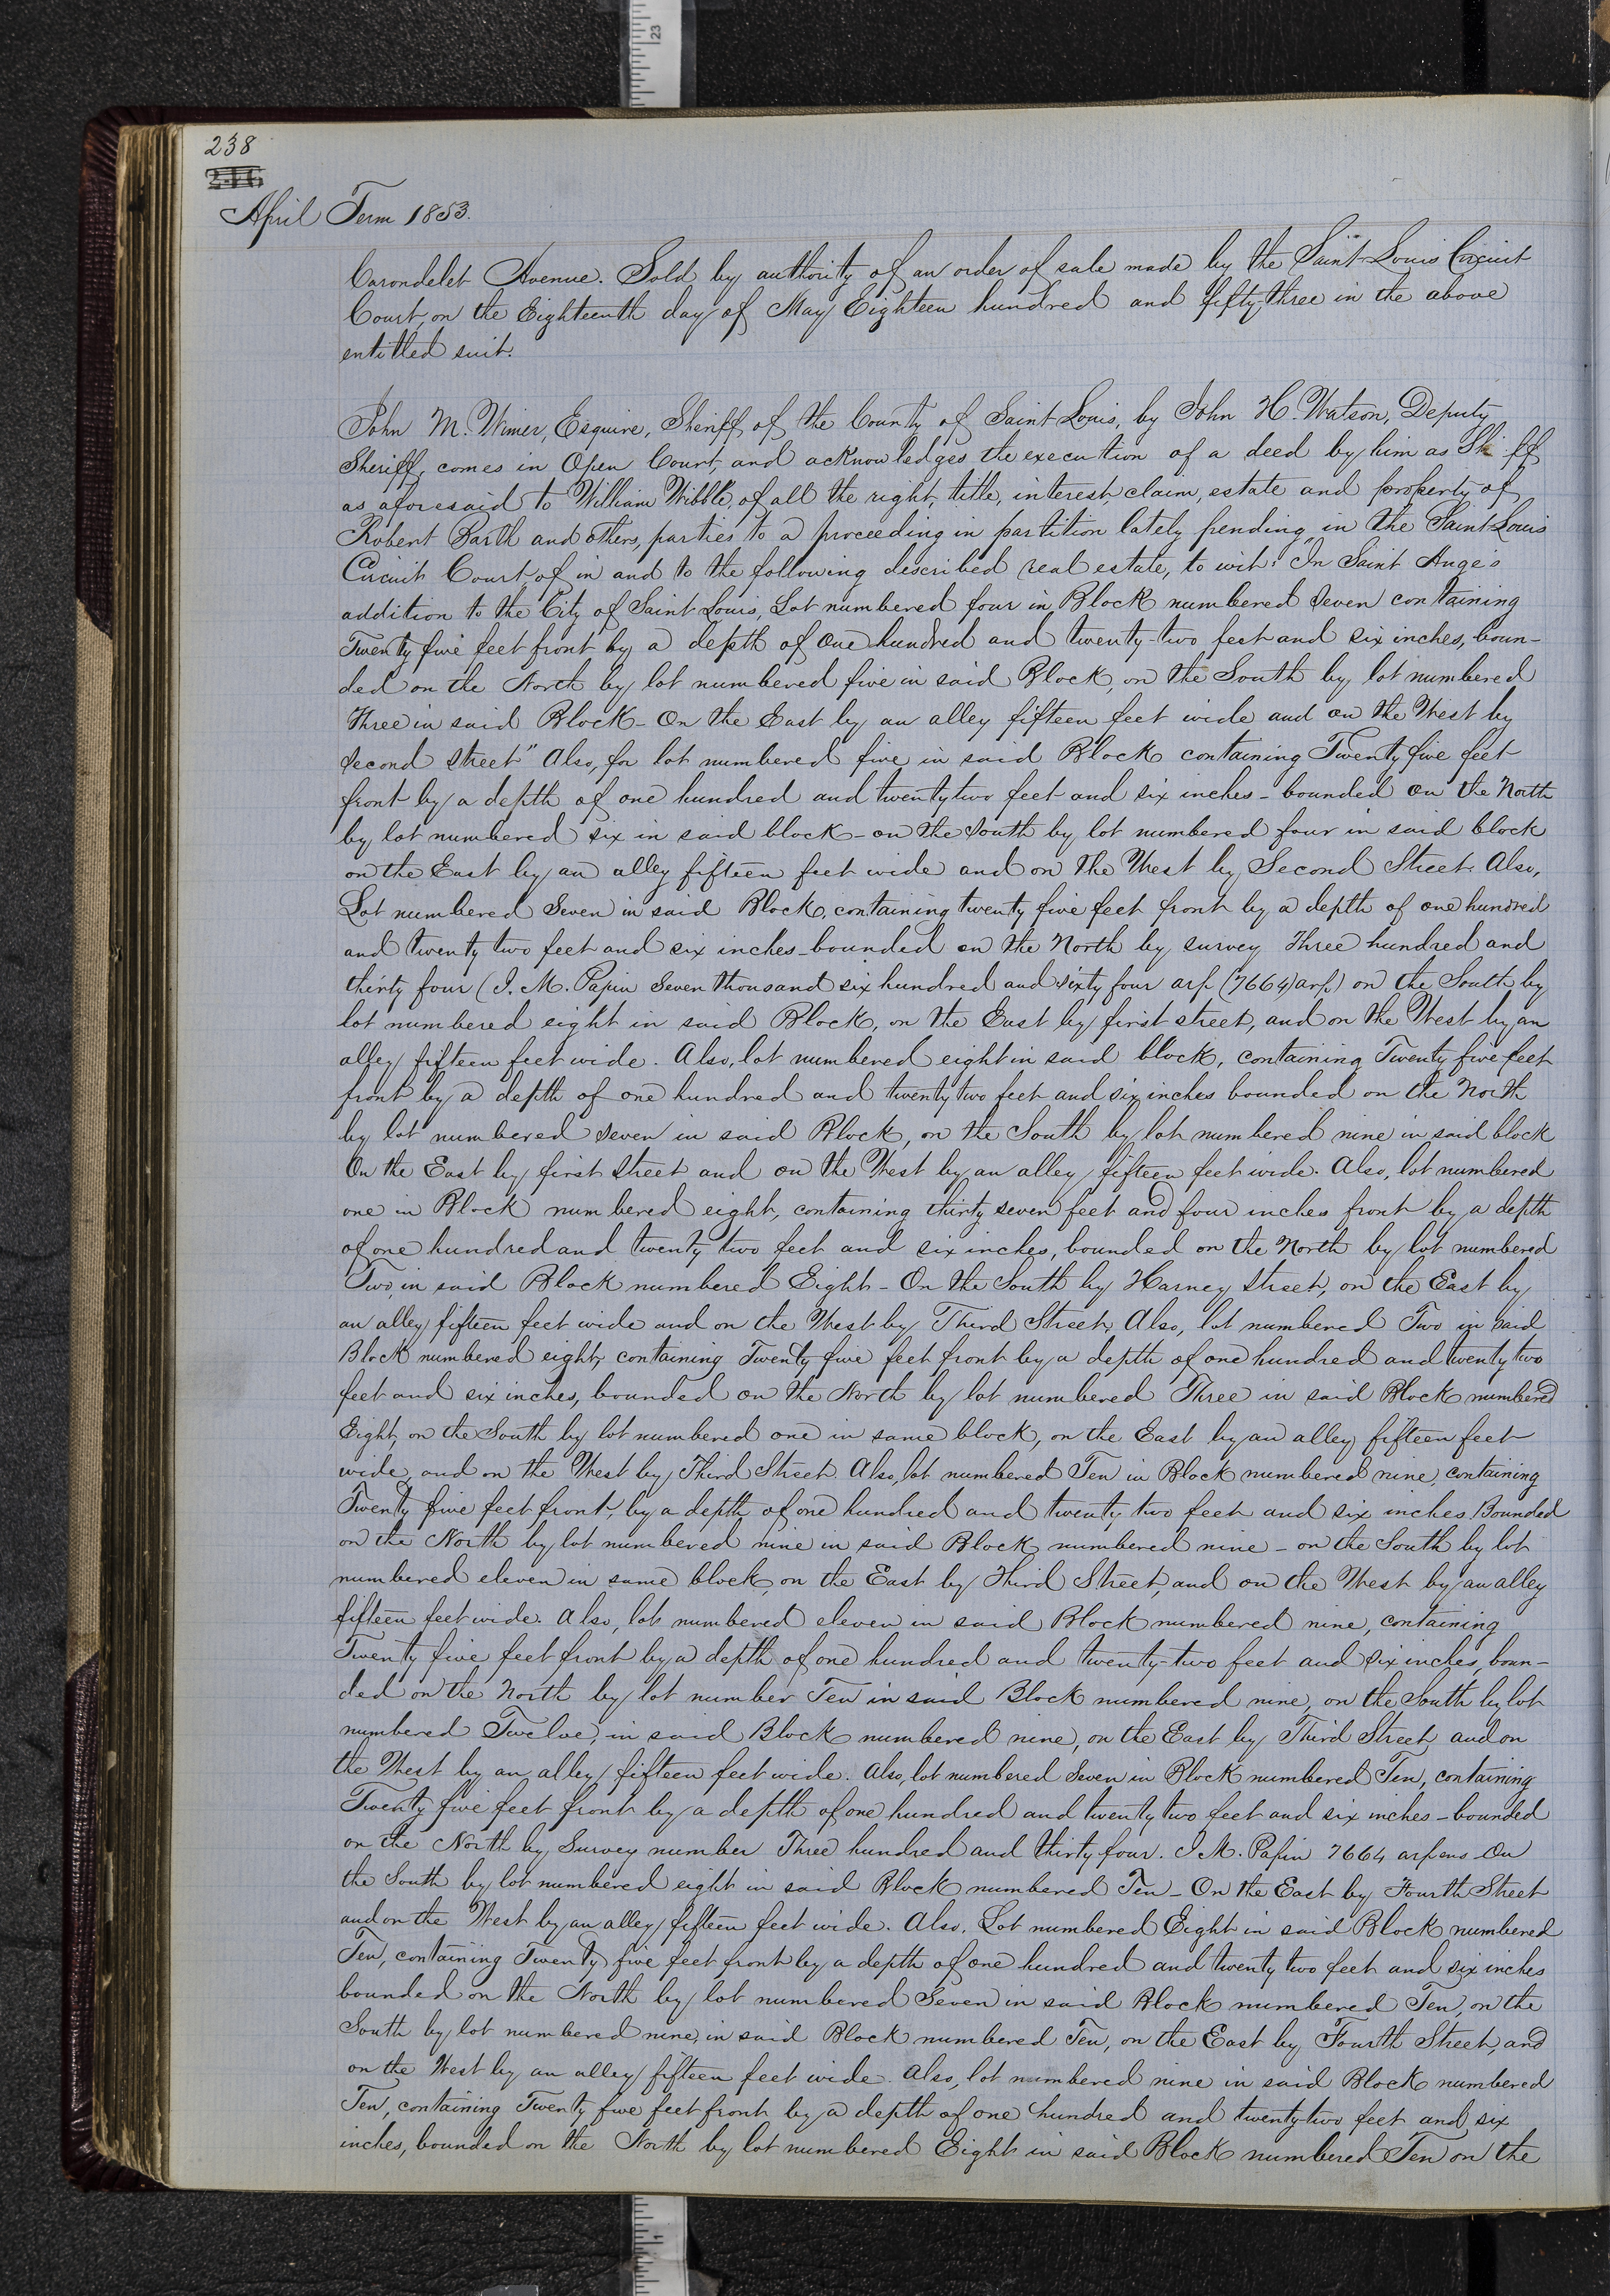 23
238
April Term 1853.
Carondelet Avenue. Sold by authority of an order of sale made by the Saint Louis Circuit
Court, on the Eighteenth day of May Eighteen hundred and fifty-three in the above
entitled suit.
John M. Wimer, Esquire, Sheriff of the County of Saint Louis, by John H. Watson, Deputy
Sheriff, comes in Open Court, and acknowledges the execution of a deed by him as Sheriff
as aforesaid to William Wibble, of all the right, title, interest, claim, estate and property of
Robert Barth and others, parties to a proceeding in partition lately pending in the Saint Louis
Circuit Court, of in and to the following described real estate, to wit: "In Saint Ange's
addition to the City of Saint Louis, Lot numbered four in Block numbered Seven containing
Twenty five feet front by a depth of One hundred and twenty-two feet and six inches, boun-
ded on the North by lot numbered five in said Block, on the South by lot numbered
Three in said Block - On the East by an alley fifteen feet wide and on the West by
Second Street" Also, for lot numbered five in said Block containing Twenty five feet
front by a depth of one hundred and twenty two feet and six inches - bounded on the North
by lot numbered six in said block - on the South by lot numbered four in said block
on the East by an alley fifteen feet wide and on the West by Second Street. Also,
Lot numbered Seven in said Block, containing twenty five feet front by a depth of one hundred
and twenty two feet and six inches - bounded on the North by survey Three hundred and
thirty four (J. M. Papin Seven thousand six hundred and sixty four arp (7664) arp) on the South by
lot numbered eight in said Block, on the East by first street, and on the West by an
alley fifteen feet wide. Also, lot numbered eight in said block, containing Twenty five feet
front by a depth of one hundred and twenty two feet and six inches bounded on the North
by lot numbered Seven in said Block, on the South by lot numbered nine in said block
On the East by first Street and on the West by an alley fifteen feet wide. Also, lot numbered
one in Block numbered eight, containing thirty seven feet and four inches front by a depth
of one hundred and twenty two feet and six inches, bounded on the North by lot numbered
Two, in said Block numbered Eight - On the South by Harney Street, on the East by
an alley fifteen feet wide and on the West by Third Street, Also, lot numbered Two in said
Block numbered eight, containing Twenty five feet front by a depth of one hundred and twenty two
feet and six inches, bounded on the North by lot numbered Three in said Block numbered
Eight, on the South by lot numbered one in same block, on the East by an alley fifteen feet
wide, and on the West by Third Street. Also, lot numbered Ten in Block numbered nine, containing
Twenty five feet front, by a depth of one hundred and twenty two feet and six inches Bounded
on the North by lot numbered nine in said Block numbered nine - on the South by lot
numbered eleven in same block, on the East by Third Street, and on the West by an alley
fifteen feet wide. Also, lot numbered eleven in said Block numbered nine, containing
Twenty five feet front by a depth of one hundred and twenty-two feet and six inches, boun-
ded on the North by lot number Ten in said Block numbered nine, on the South by lot
numbered Twelve, in said Block numbered nine, on the East by Third Street, and on
the West by an alley fifteen feet wide. Also, lot numbered Seven in Block numbered Ten, containing
Twenty five feet front by a depth of one hundred and twenty two feet and six inches - bounded
on the North by Survey number Three hundred and thirty four. J. M. Papin 7664 arpens On
the South by lot numbered eight in said Block numbered Ten - On the East by Fourth Street
and on the West by an alley fifteen feet wide. Also, Lot numbered Eight in said Block numbered
Ten, containing Twenty five feet front by a depth of one hundred and twenty two feet and six inches
bounded on the North by lot numbered Seven in said Block numbered Ten, on the
South by lot numbered nine, in said Block numbered Ten, on the East by Fourth Street, and
on the West by an alley fifteen feet wide. Also, lot numbered nine in said Block numbered
Ten, containing Twenty five feet front by a depth of one hundred and twenty two feet and six
inches, bounded on the North by lot numbered Eight in said Block numbered Ten on the
1